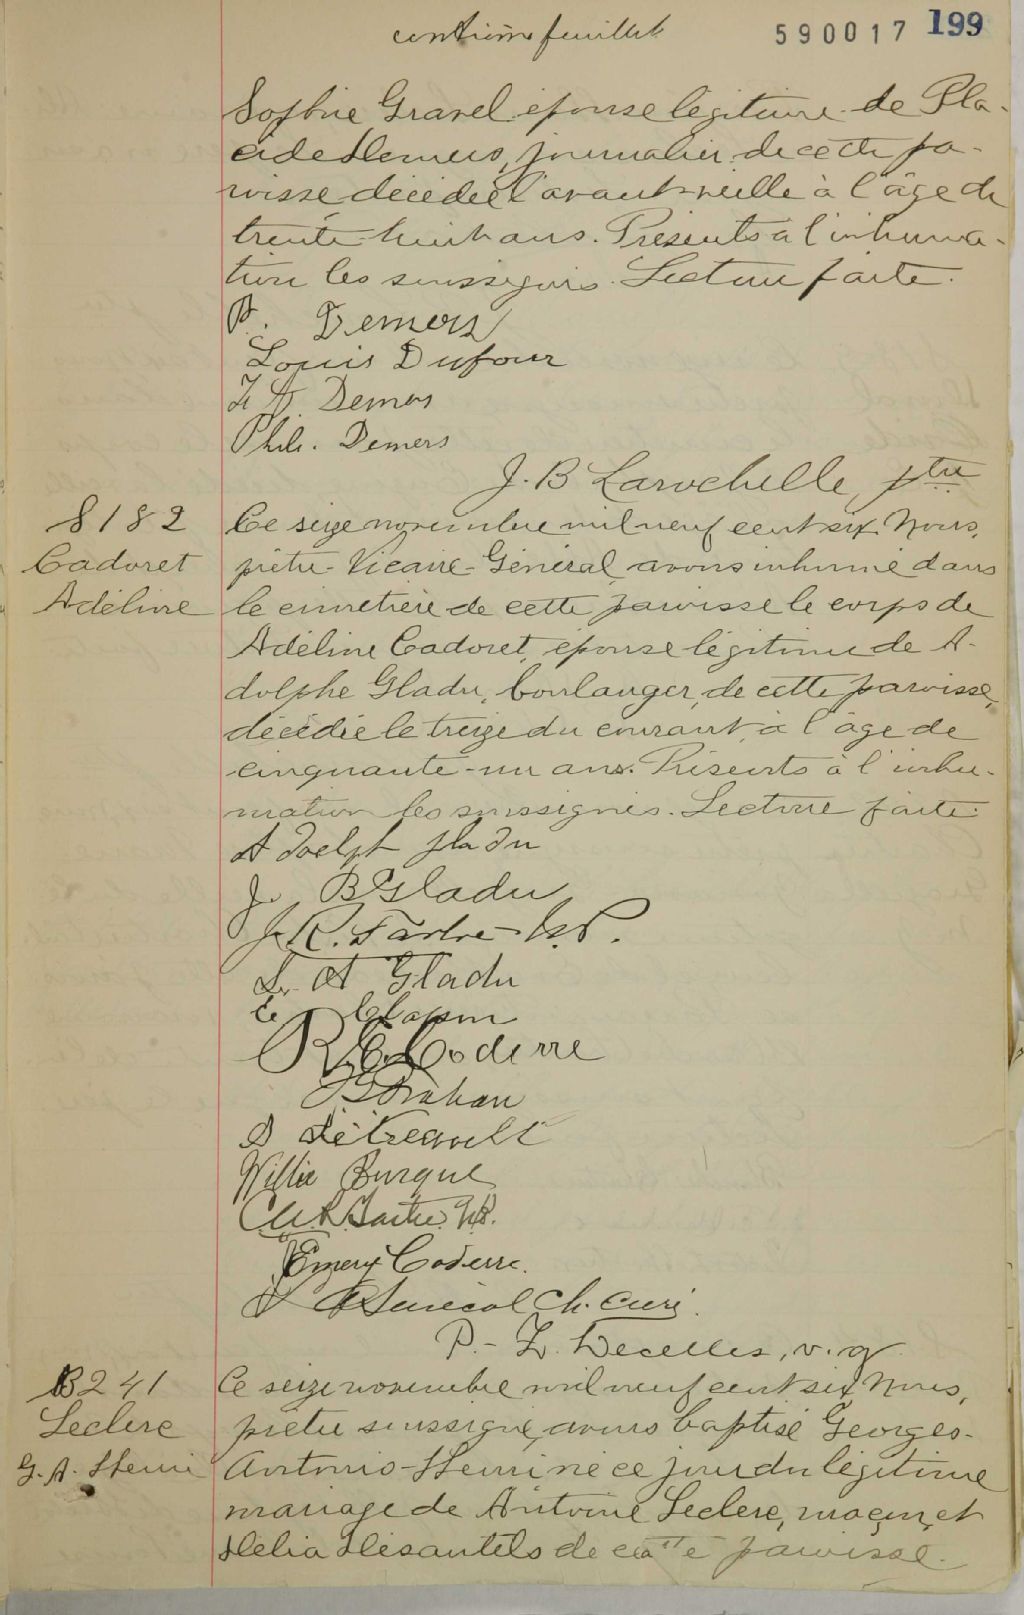 centième feuillet
590017 199
Sophie Gravel épouse légitime de Pla-
cide Demers, journalier de cette pa-
roisse décédée l'avant-veille à l'âge de
trente-huit ans. Présents à l'inhuma-
tion les soussignés. Lecture faite.
P. Demers
Louis Dufour
Demers
Phil. Demers
J. B Larochelle, ptre
S 182
Cadoret
Adéline
Ce seize novembre mil neuf cent six Nous,
prêtre-Vicaire-Général avons inhumé dans
le cimetière de cette paroisse le corps de
Adéline Cadoret, épouse légitime de A-
dolphe Gladu, boulanger, de cette paroisse,
décédée le treize du courant, à l'âge de
cinquante-un ans. Présents à l'inhu-
mation les soussignés. Lecture faite.
Adoelph gladu
J. B Gladu
J. R. Tartre N.P.
L. A Gladu
R. E. Coderre
Détreault
Willie Burque
Tartre N.P.
Emery Coderre.
Senécal Ch. Curé.
P.-Z. Decelles, v.g
B241
Leclerc
G. A. Henri
Ce seize novembre mil neuf cent six Nous,
prêtre soussigné, avons baptisé Georges-
Antonio-Henri né ce jour du légitime
mariage de Antoine Leclerc, maçon, et
Délia Désautels de cette paroisse.